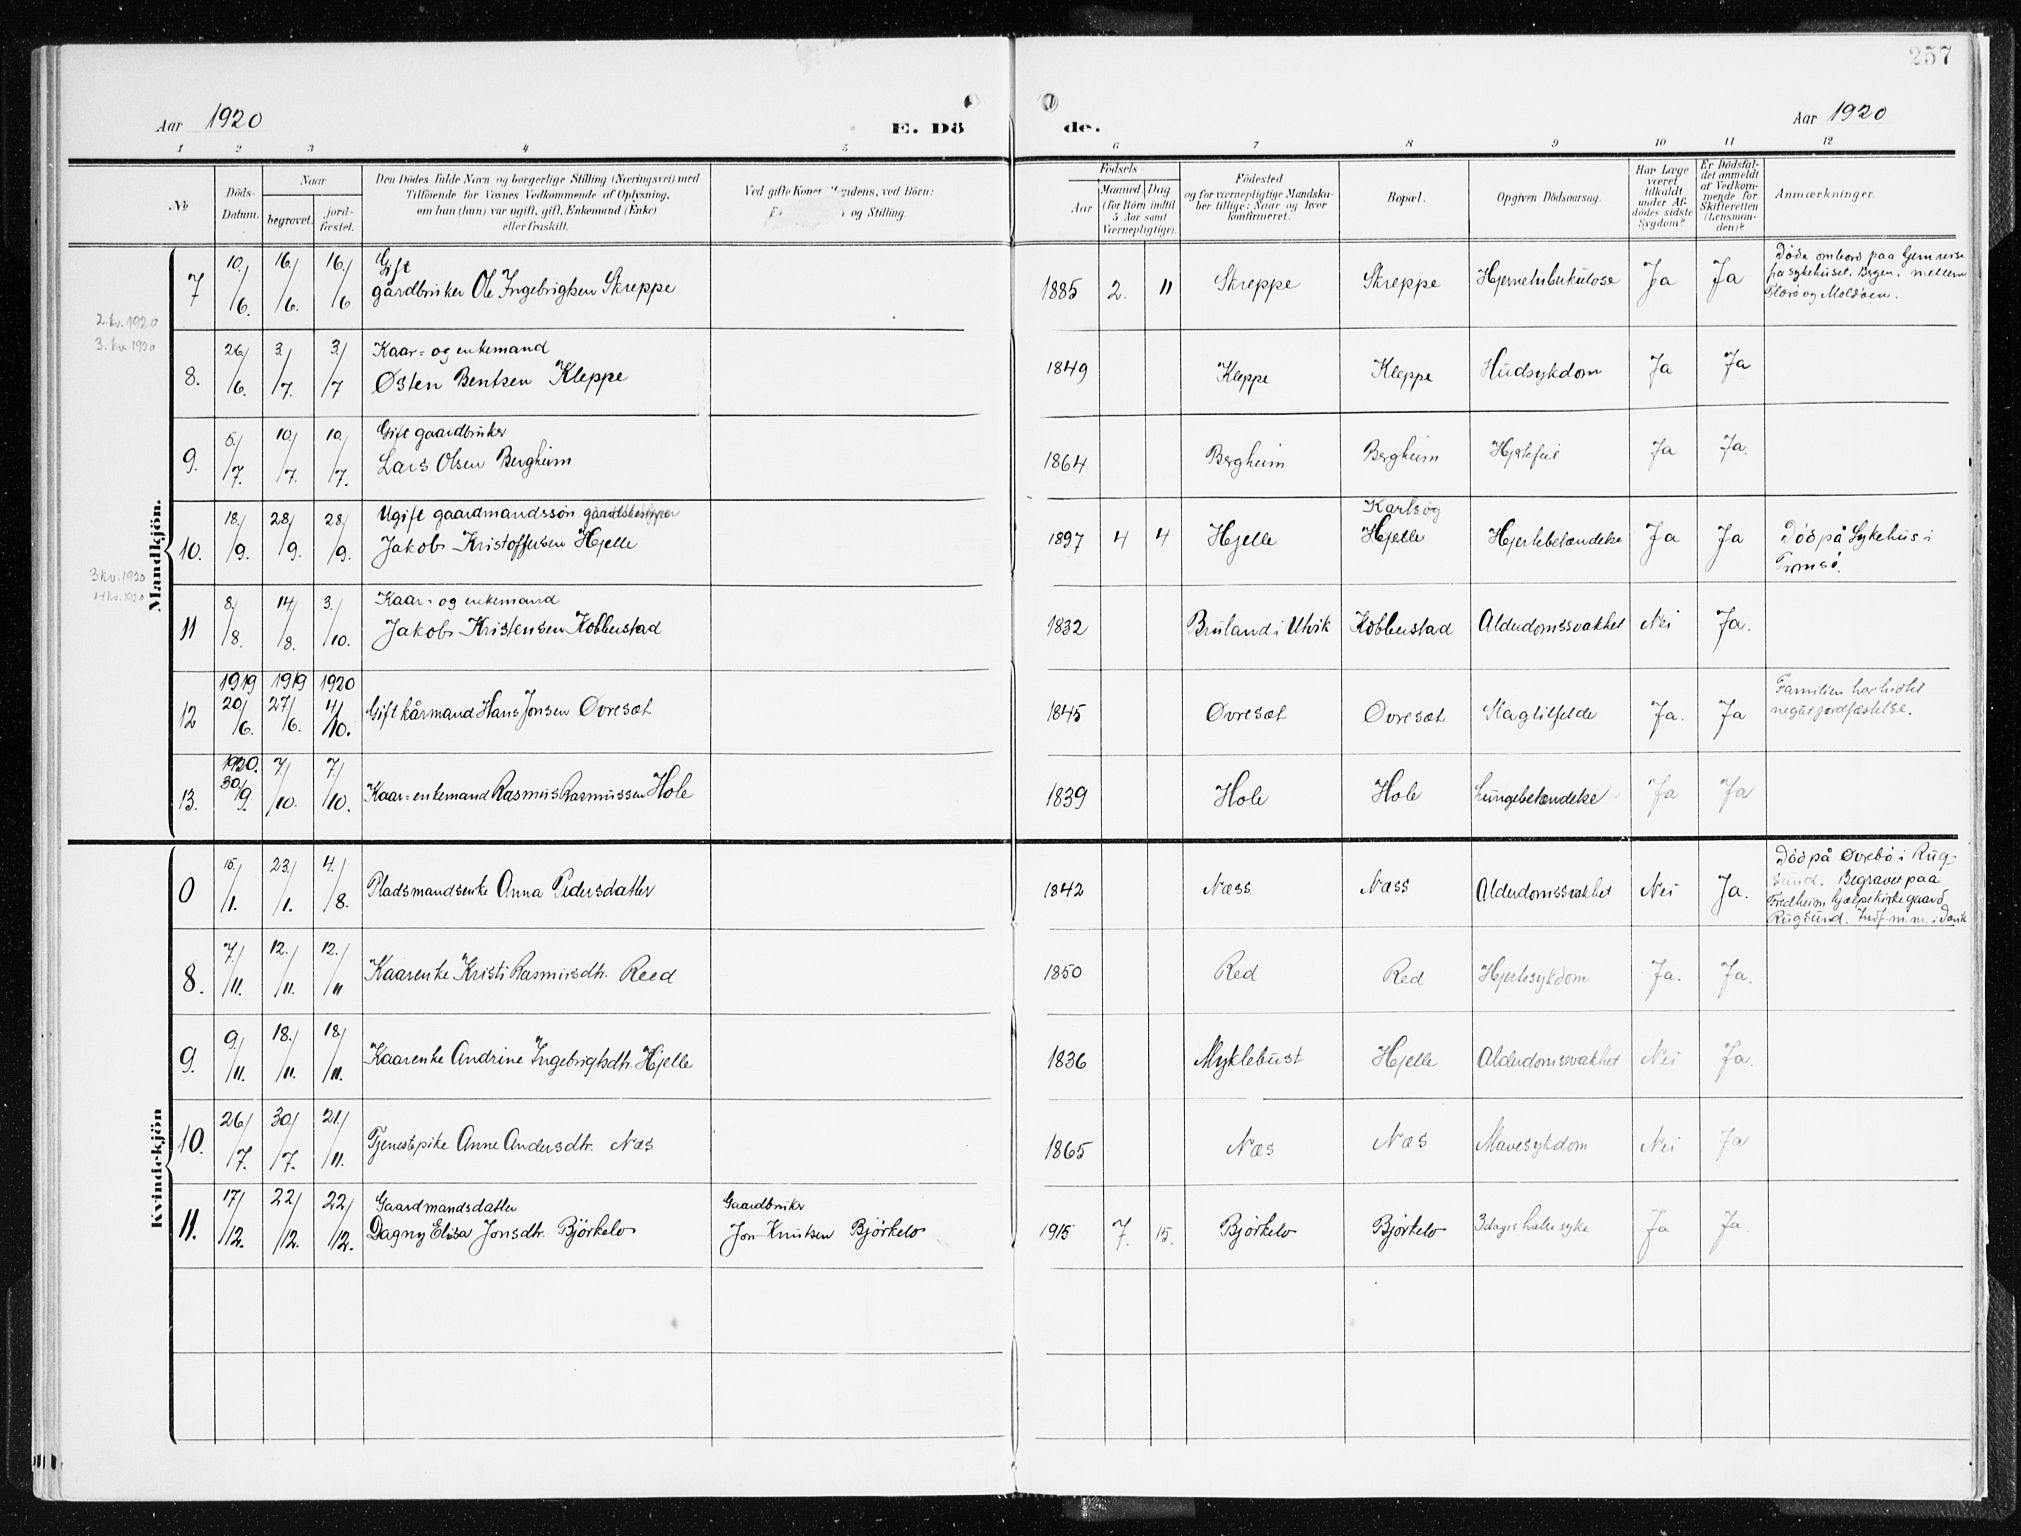 257
Aar 1920
E. Dö
de.
Aar 1920
1 2 3 4 5 6 7 8 9 10 11 12
№
Döds-
Datum.
Naar
begravet.
jord-
fæstet.
Den Dödes fulde Navn og borgerlige Stilling (Næringsvei) med
Tilföiende for Voxnes Vedkommende af Oplysning,
om han (hun) var ugift, gift, Enkemand (Enke)
eller fraskilt.
Ved gifte Koner: Mandens, ved Börn:
og Stilling.
Födsels-
Aar
Maaned Dag
(for Börn indtil
5 Aar samt
Værnepligtige).
Födested
og for værnepligtige Mandska-
ber tillige: Naar og hvor
konfirmeret.
Bopæl.
Opgiven Dödsaarsag.
Har Læge
været
tilkaldt
under Af-
dödes sidste
Sygdom?
Er Dödsfal-
det anmeldt
af Vedkom-
mende for
Skifteretten
(Lensman-
den)?
Anmærkninger.
Mandkjön.
2. kv. 1920
3. kv. 1920
3 kv. 1920
4 kv. 1920
7 10./6. 16./6. 16./6 Gift
gårdbruker Ole Ingebrigtsen Skreppe 1885 2. 11 Skreppe Skreppe Hjernetuberkulose Ja Ja Døde ombord paa hjemreise
fra sykehuset. Bergen. mellem
Florø og Moldøen.
8. 26/6. 3./7. 3./7 Kaar- og enkemand
Østen Bentsen Kleppe 1849 Kleppe Kleppe Hudsykdom Ja Ja
9. 5./7. 10./7. 10./7. Gift gaardbruker
Lars Olsen Bergheim 1864 Bergheim Bergheim Hjertefeil Ja Ja.
10. 18./9. 28/9. 28/9. Ugift gaardmandssøn
Jakob Kristoffersen Hjelle 1897 4 4 Hjelle Karlsøy
Hjelle Hjertebetændelse Ja Ja Død på Sykehus i
Tromsø.
11 8./8. 14/8. 3./10. Kaar- og enkemand
Jakob Kristensen Kobberstad 1832 Bruland i Utvik Kobberstad Alderdomssvakhet Nei Ja.
12 1919 20/6. 1919 27/6. 1920 4/10. Gift kårmand Hans Jonsen Øvresæt 1845 Øvresæt Øvresæt Slagtilfelde Ja. Ja Familien har
jordfæstelse.
13. 1920. 30/9. 7./10. 7./10. Kaar-enkemand Rasmus Rasmussen Hole 1839 Hole Hole Lungebetændelse Ja Ja
Kvindekjön
0 15./1. 23./1. 4./8. Pladsmandsenke Anna Pedersdatter 1842 Næss Næss Alderdomssvakhet Nei Ja. Død på Øvrebø i Rug-
sund. Begravet paa
Fredheim hjælpekirkegaard
Rugsund. Indf. m. m. i Davik
8. 7./11. 12./11. 12./11 Kaarenke Kristi Rasmusdtr. Reed 1850 Red Red Hjertesykdom Ja. Ja.
9. 9./11. 18./11. 18./11. Kaarenke Andrine Ingebrigtsdtr. Hjelle 1836 Myklebust Hjelle Alderdomssvakhet Nei Ja.
10. 26/7. 30/7. 21/11. Tjenestepike Anne Andersdtr. Næs 1865 Næs Næs Mavesykdom Nei Ja
11. 17/12. 22/12. 22/12. Gaardmandsdatter
Dagny Elisa Jonsdtr. Bjørkelo Gaardbruker
Jon Knutsen Bjørkelo 1915 7. 15. Bjørkelo Bjørkelo 3 dages halsesyke Ja Ja.